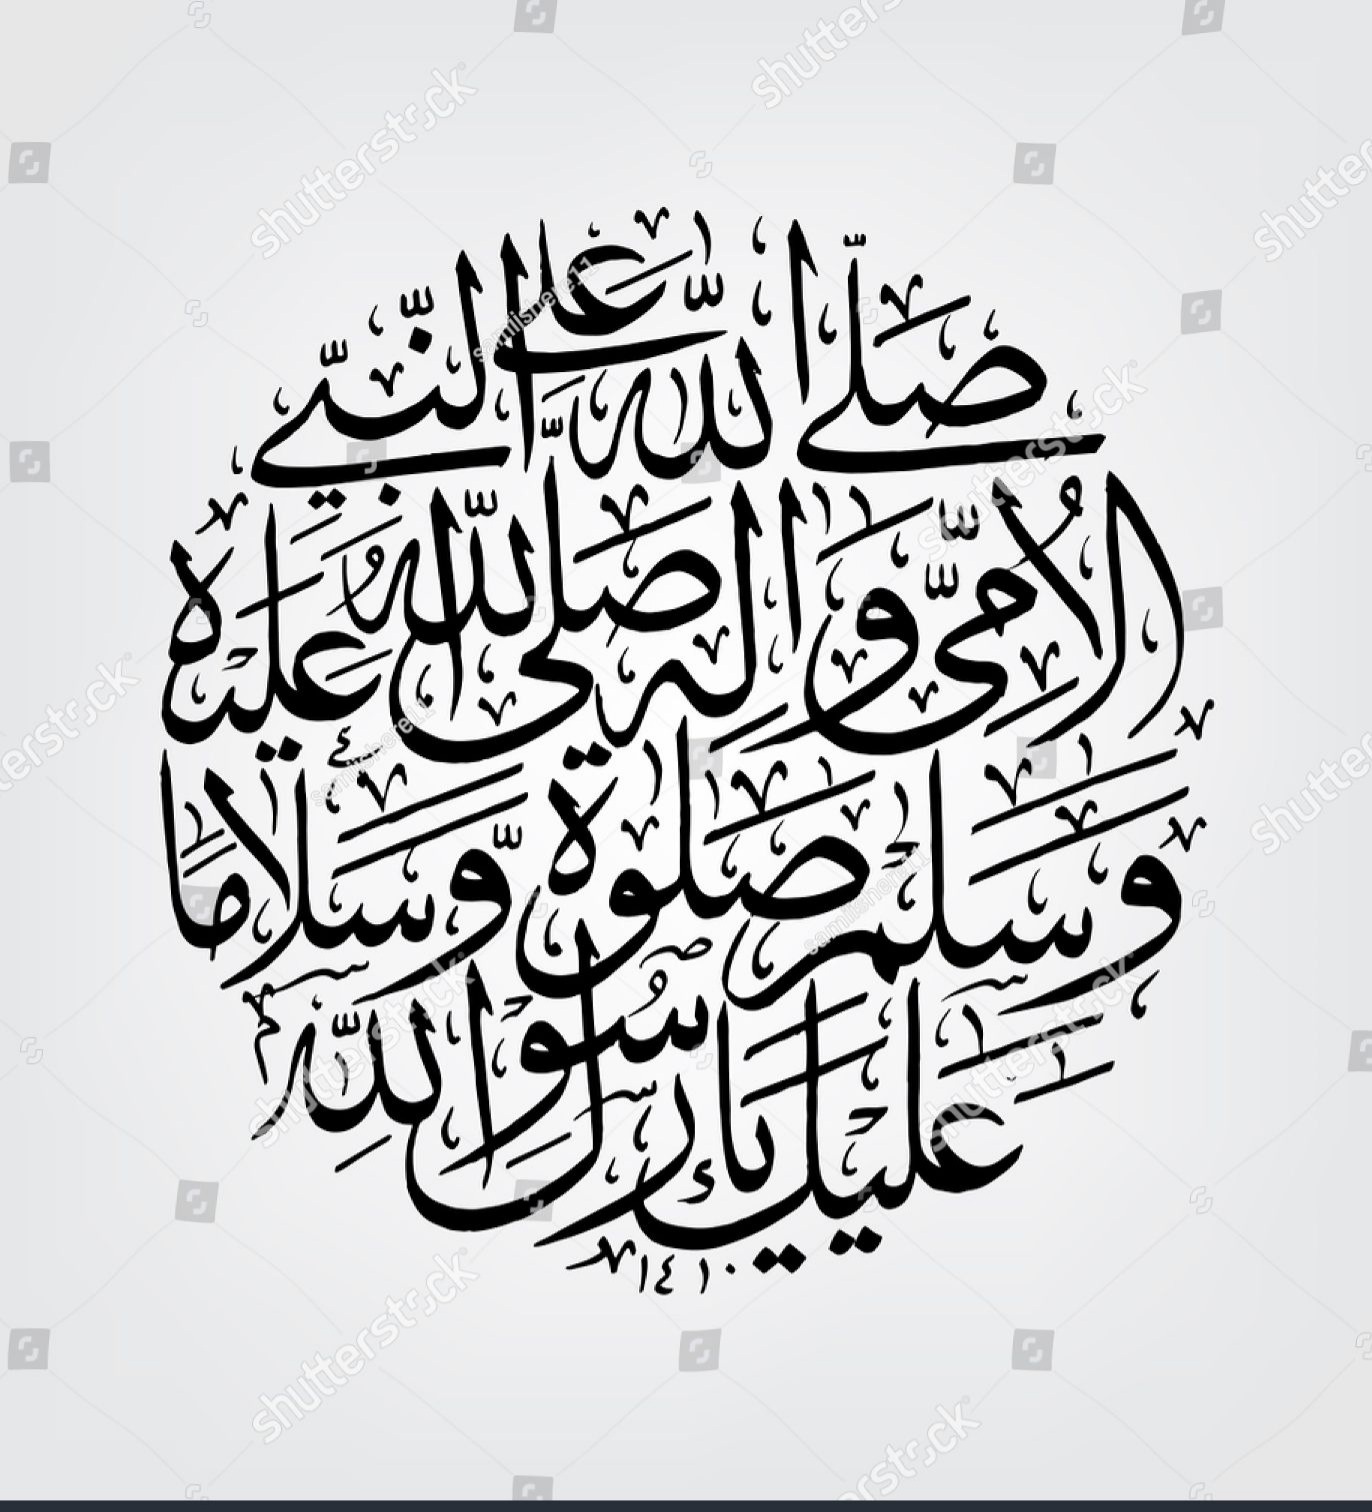 صَلَّى اللّٰهُ عَلَى النَّبِيِّ
الْأُمِّيِّ وَاٰلِهِ صَلَّى اللّٰهُ عَلَيْهِ
وَسَلَّمْ صَلٰوةً وَّسَلَامًا
عَلَيْكَ يَا رَسُوْلَ اللّٰهِ
١٤١٠
shutterstock
samiisnere11